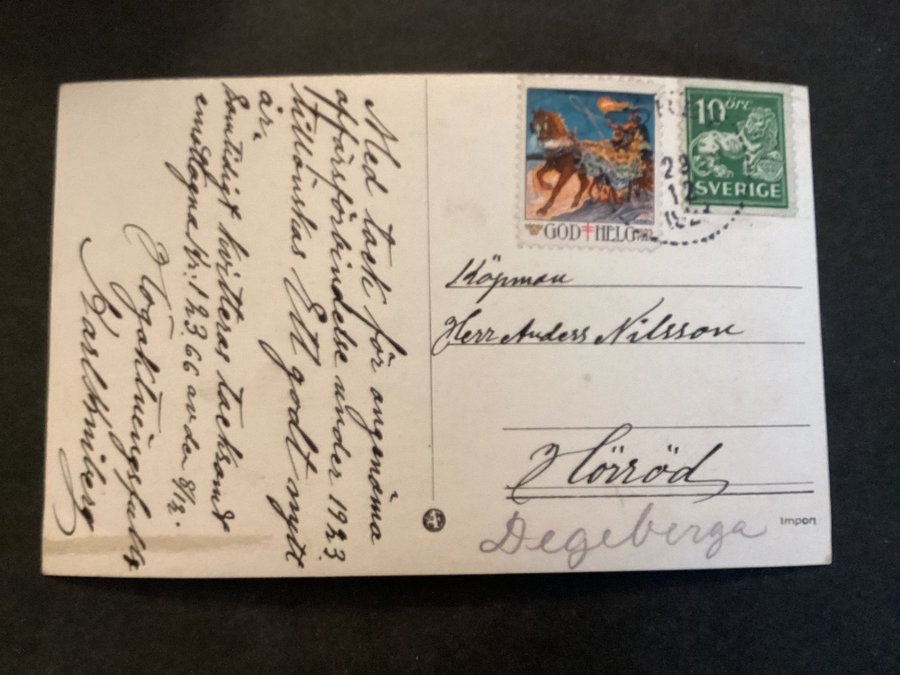 Med tack för angenäma
affärsförbindelse under 1923
tillönskas Ett godt nytt
år.
Samtidigt kvitteras tacksamt
emottagna kr: 123 66 av den 8/12.
Högaktningsfullt
GOD HELG
10 öre
SVERIGE
23
12
Köpman
Herr Anders Nilsson
Hörröd
Degeberga
Import